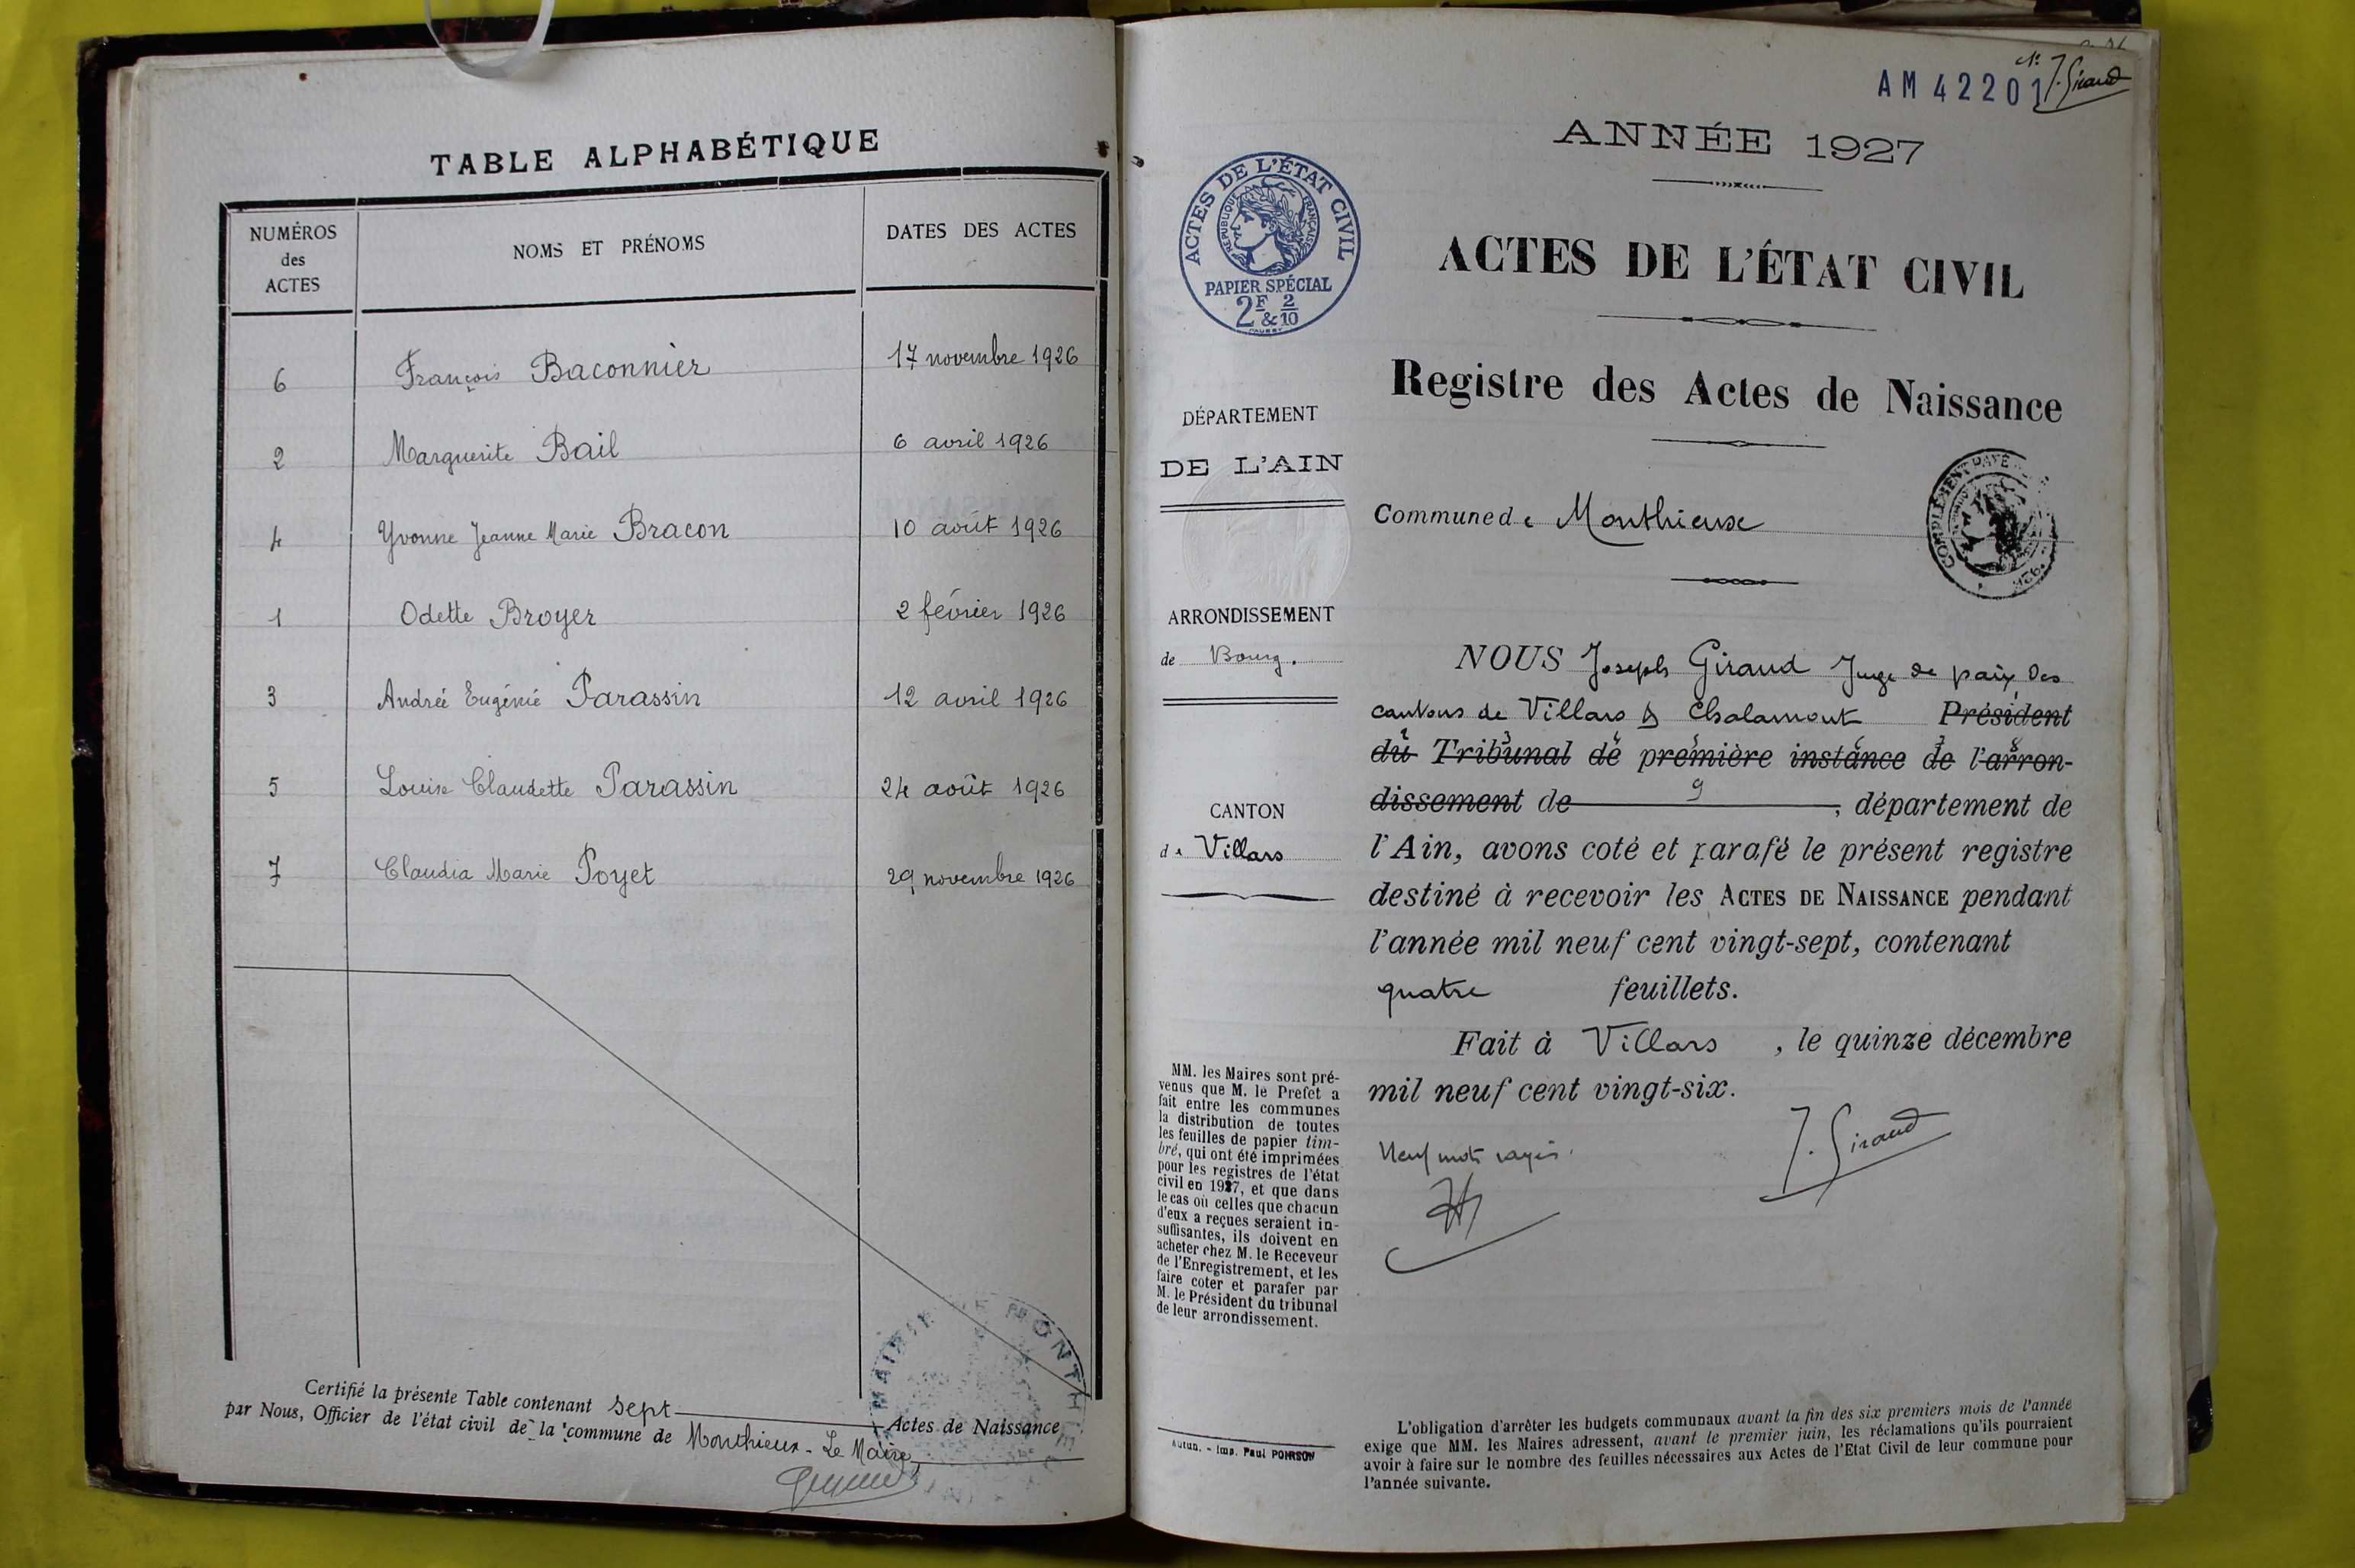 TABLE ALPHABÉTIQUE
NUMÉROS des ACTES
NOMS ET PRÉNOMS
DATES DES ACTES
6 François Baconnier 17 novembre 1926
2 Marguerite Bail 6 avril 1926
4 Yvonne Jeanne Marie Bracon 10 août 1926
1 Odette Broyer 2 février 1926
3 Andréé Eugénie Parassin 12 avril 1926
5 Louise Claudette Parassin 24 août 1926
7 Claudia Marie Poyet 29 novembre 1926
Certifié la présente Table contenant sept Actes de Naissance
par Nous, Officier de l'état civil de la commune de Monthieux - Le Maire,
MAIRIE DE MONTHIE
AM 42201
J. Giraud
ANNÉE 1927
ACTES DE L'ÉTAT CIVIL
RÉPUBLIQUE FRANÇAISE
PAPIER SPÉCIAL
2F & 2/10
ACTES DE L'ÉTAT CIVIL
Registre des Actes de Naissance
DÉPARTEMENT
DE L'AIN
Commune de Monthieux
COMPLÉMENT PAYÉ
ARRONDISSEMENT
de Bourg.
CANTON
de Villars
NOUS Joseph Giraud Juge de paix des
cantons de Villars & Chalamont Président
du Tribunal de première instance de l'arron-
dissement de 9, département de
l'Ain, avons coté et parafé le présent registre
destiné à recevoir les ACTES DE NAISSANCE pendant
l'année mil neuf cent vingt-sept, contenant
quatre feuillets.
Fait à Villars, le quinze décembre
mil neuf cent vingt-six.
Neuf mots rayés.
J. Giraud
MM. les Maires sont pré-
venus que M. le Prefet a
fait entre les communes
la distribution de toutes
les feuilles de papier tim-
bré, qui ont été imprimées
pour les registres de l'état
civil en 1927, et que dans
le cas où celles que chacun
d'eux a reçues seraient in-
suffisantes, ils doivent en
acheter chez M. le Receveur
de l'Enregistrement, et les
faire coter et parafer par
M. le Président du tribunal
de leur arrondissement.
Autun. - Imp. Paul POIRSON
L'obligation d'arrêter les budgets communaux avant la fin des six premiers mois de l'année
exige que MM. les Maires adressent, avant le premier juin, les réclamations qu'ils pourraient
avoir à faire sur le nombre des feuilles nécessaires aux Actes de l'Etat Civil de leur commune pour
l'année suivante.